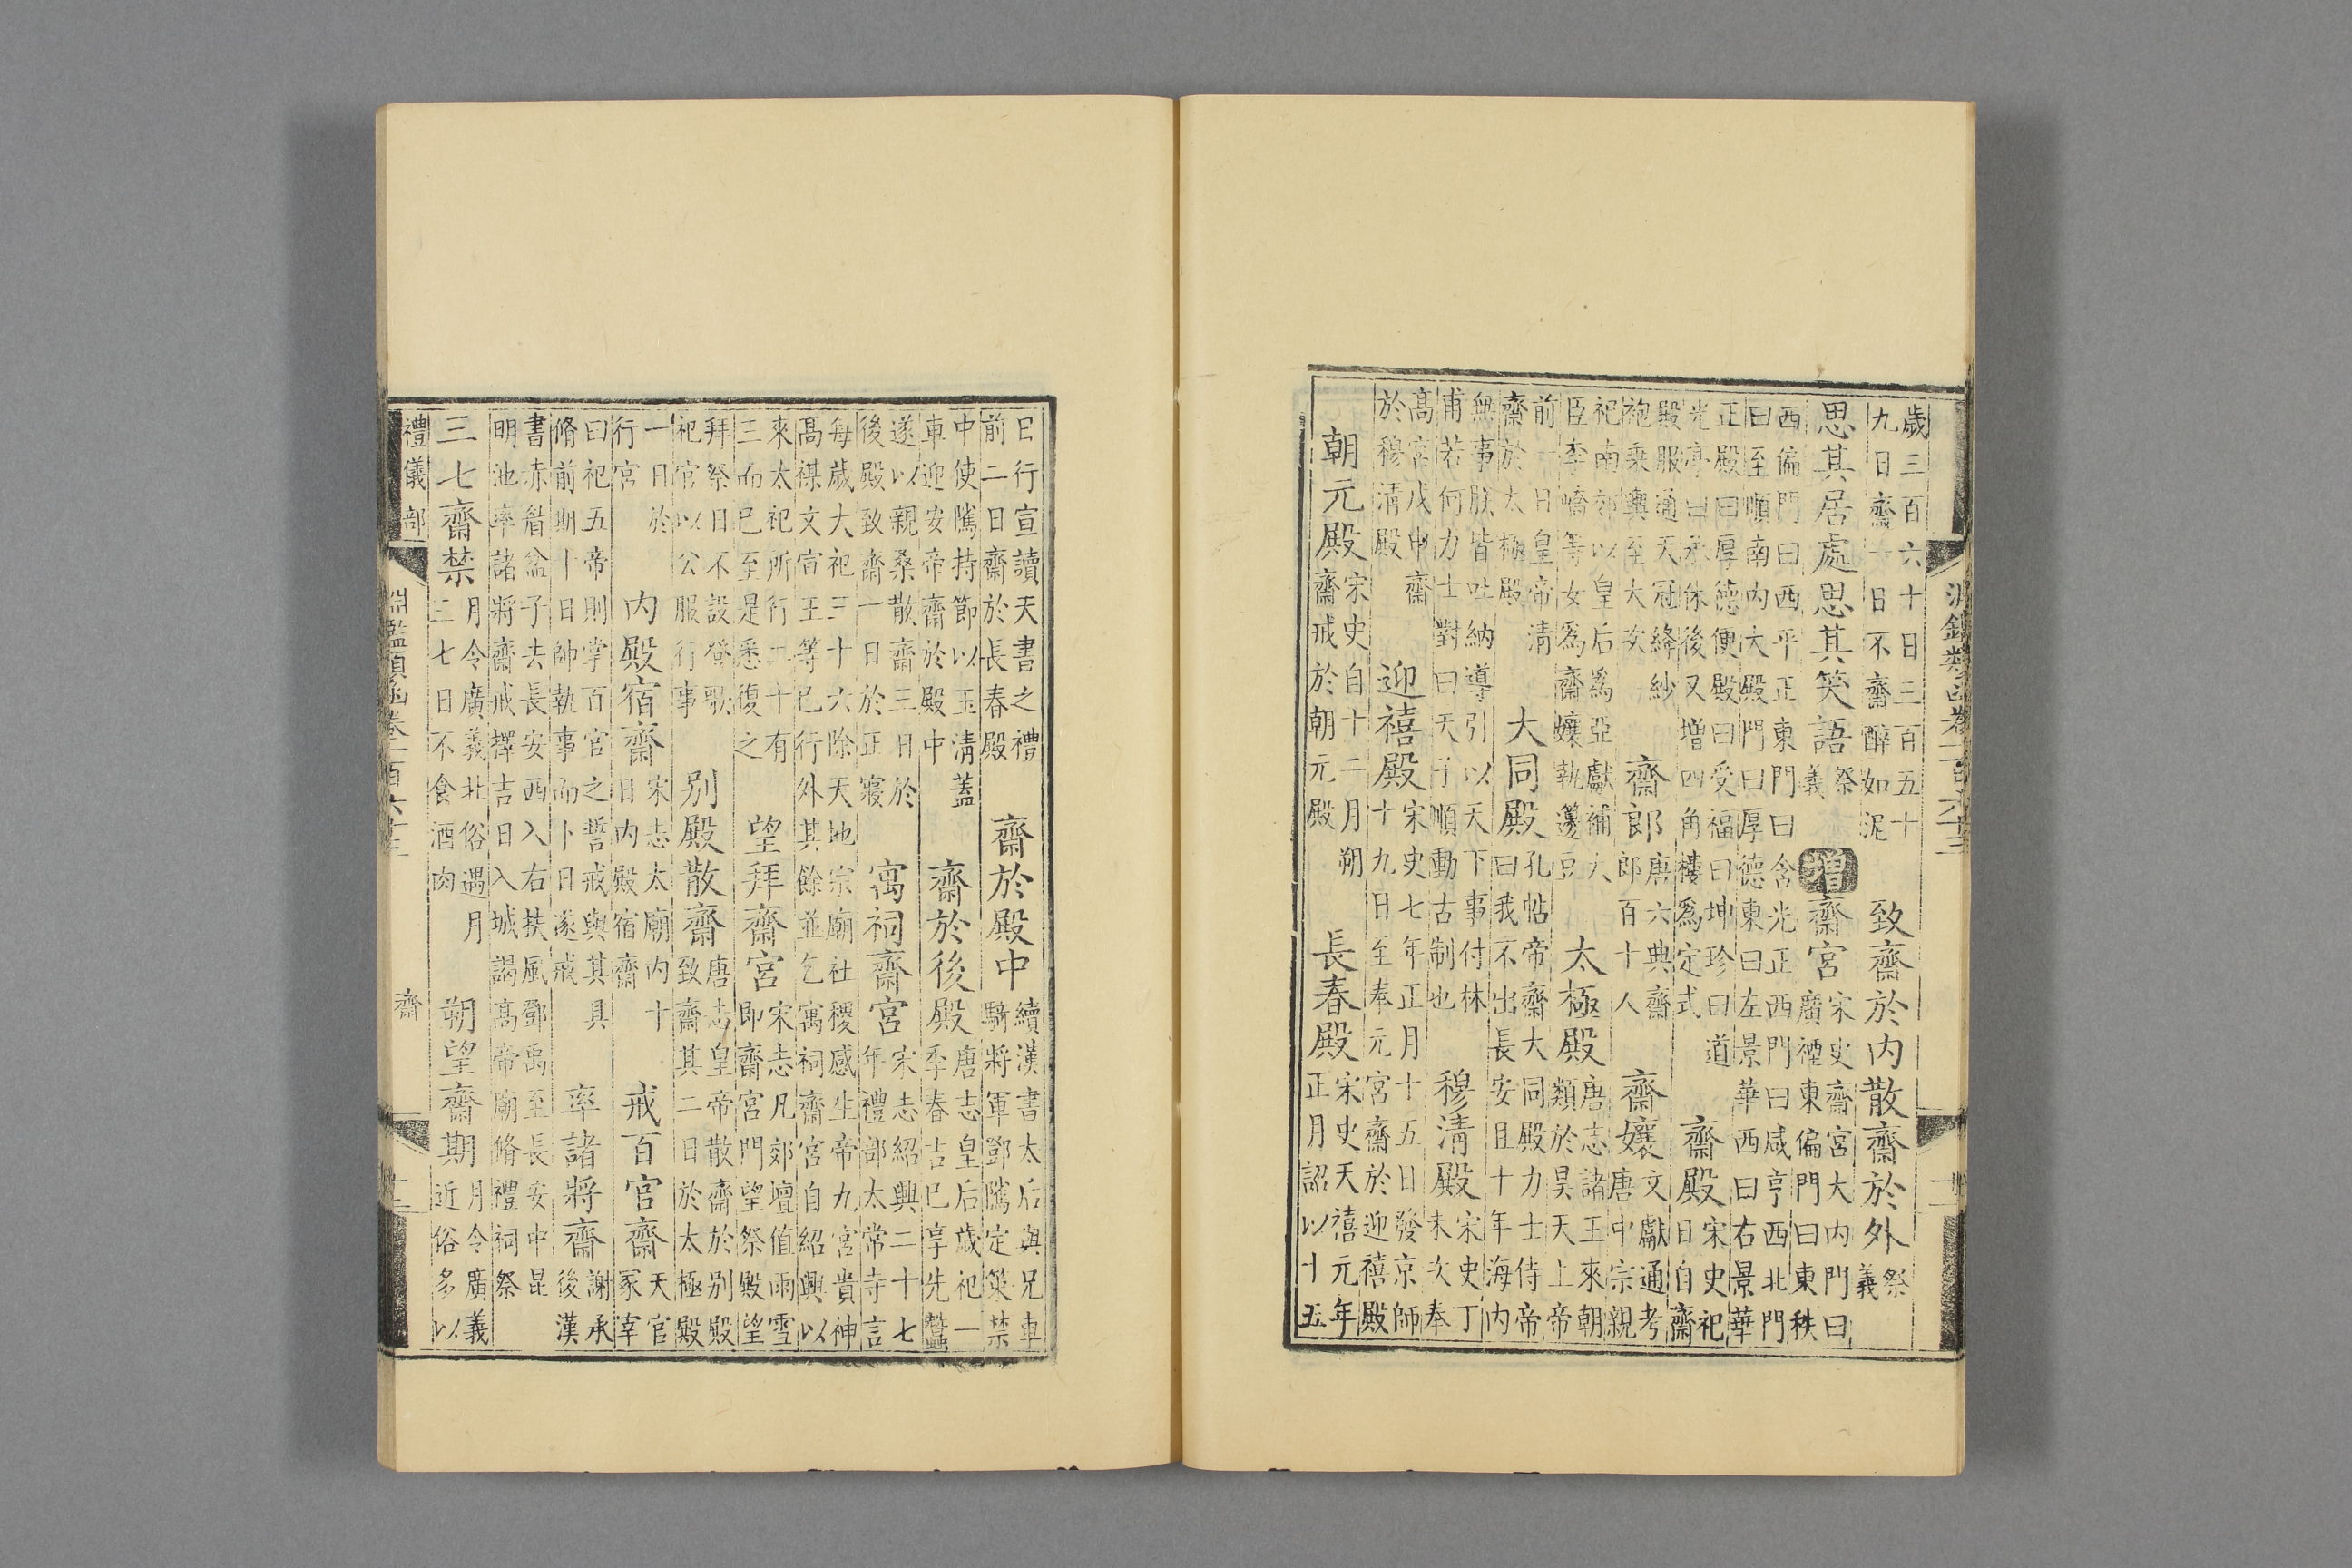 歲三百六十日三百五十九日齋一日不齋醉如泥 致齋於內散齋於外 祭義
思其居處思其笑語 祭義 增 齋宮 宋史齋宮大內門曰廣禋東偏門曰東秩
西偏門曰西平正東門曰含光正西門曰咸亨西北門曰至順南內大殿門曰厚德東曰左景華西曰右景華
正殿曰厚德便殿曰受福曰坤珍曰道光亭曰承休後又增四角樓爲定式 齋殿 宋史祀日自齋
殿服通天冠絳紗袍乘輿至大次 齋郎 唐六典齋郎百十人 齋孃 文獻通考唐中宗親
祀南郊以皇后爲亞獻補大臣李嶠等女爲齋孃執籩豆 太極殿 唐志諸王來朝類於昊天上帝
前一日皇帝清齋於太極殿 大同殿 孔帖帝齋大同殿力士侍帝曰我不出長安且十年海內
無事朕皆吐納導引以天下事付林甫若何力士對曰天子順動古制也 穆清殿 宋史丁未次奉
高宮戊申齋於穆清殿 迎禧殿 宋史七年正月十五日發京師十九日至奉元宮齋於迎禧殿
朝元殿 宋史自十二月朔齋戒於朝元殿 長春殿 宋史天禧元年正月詔以十五
日行宣讀天書之禮前二日齋於長春殿 齋於殿中 續漢書太后與兄車騎將軍鄧隲定策禁
中使隲持節以玉清蓋車迎安帝齋於殿中 齋於後殿 唐志皇后歲祀一季春吉巳享先蠶
遂以親桑散齋三日於後殿致齋一日於正寢 寓祠齋宮 宋志紹興二十七年禮部太常寺言
每歲大祀三十六除天地宗廟社稷感生帝九宮貴神高禖文宣王等已行外其餘並乞寓祠齋宮自紹興以
來太祀所行二十有三而已至是悉復之 望拜齋宮 宋志凡郊壇值雨雪即齋宮門望祭殿望
拜祭日不設登歌祀官以公服行事 別殿散齋 唐志皇帝散齋於別殿致齋其二日於太極殿
一日於行宮 內殿宿齋 宋志太廟內十日內殿宿齋 戒百官齋 天官冢宰
曰祀五帝則掌百官之誓戒與其具脩前期十日帥執事而卜日遂戒 率諸將齋 謝承後漢
書赤眉盆子去長安西入右扶風鄧禹至長安中昆明池率諸將齋戒擇吉日入城謁高帝廟脩禮祠祭
三七齋禁 月令廣義北俗遇月三七日不食酒肉 朔望齋期 月令廣義近俗多以
禮儀部 淵鑑類函卷一百六十三 齋